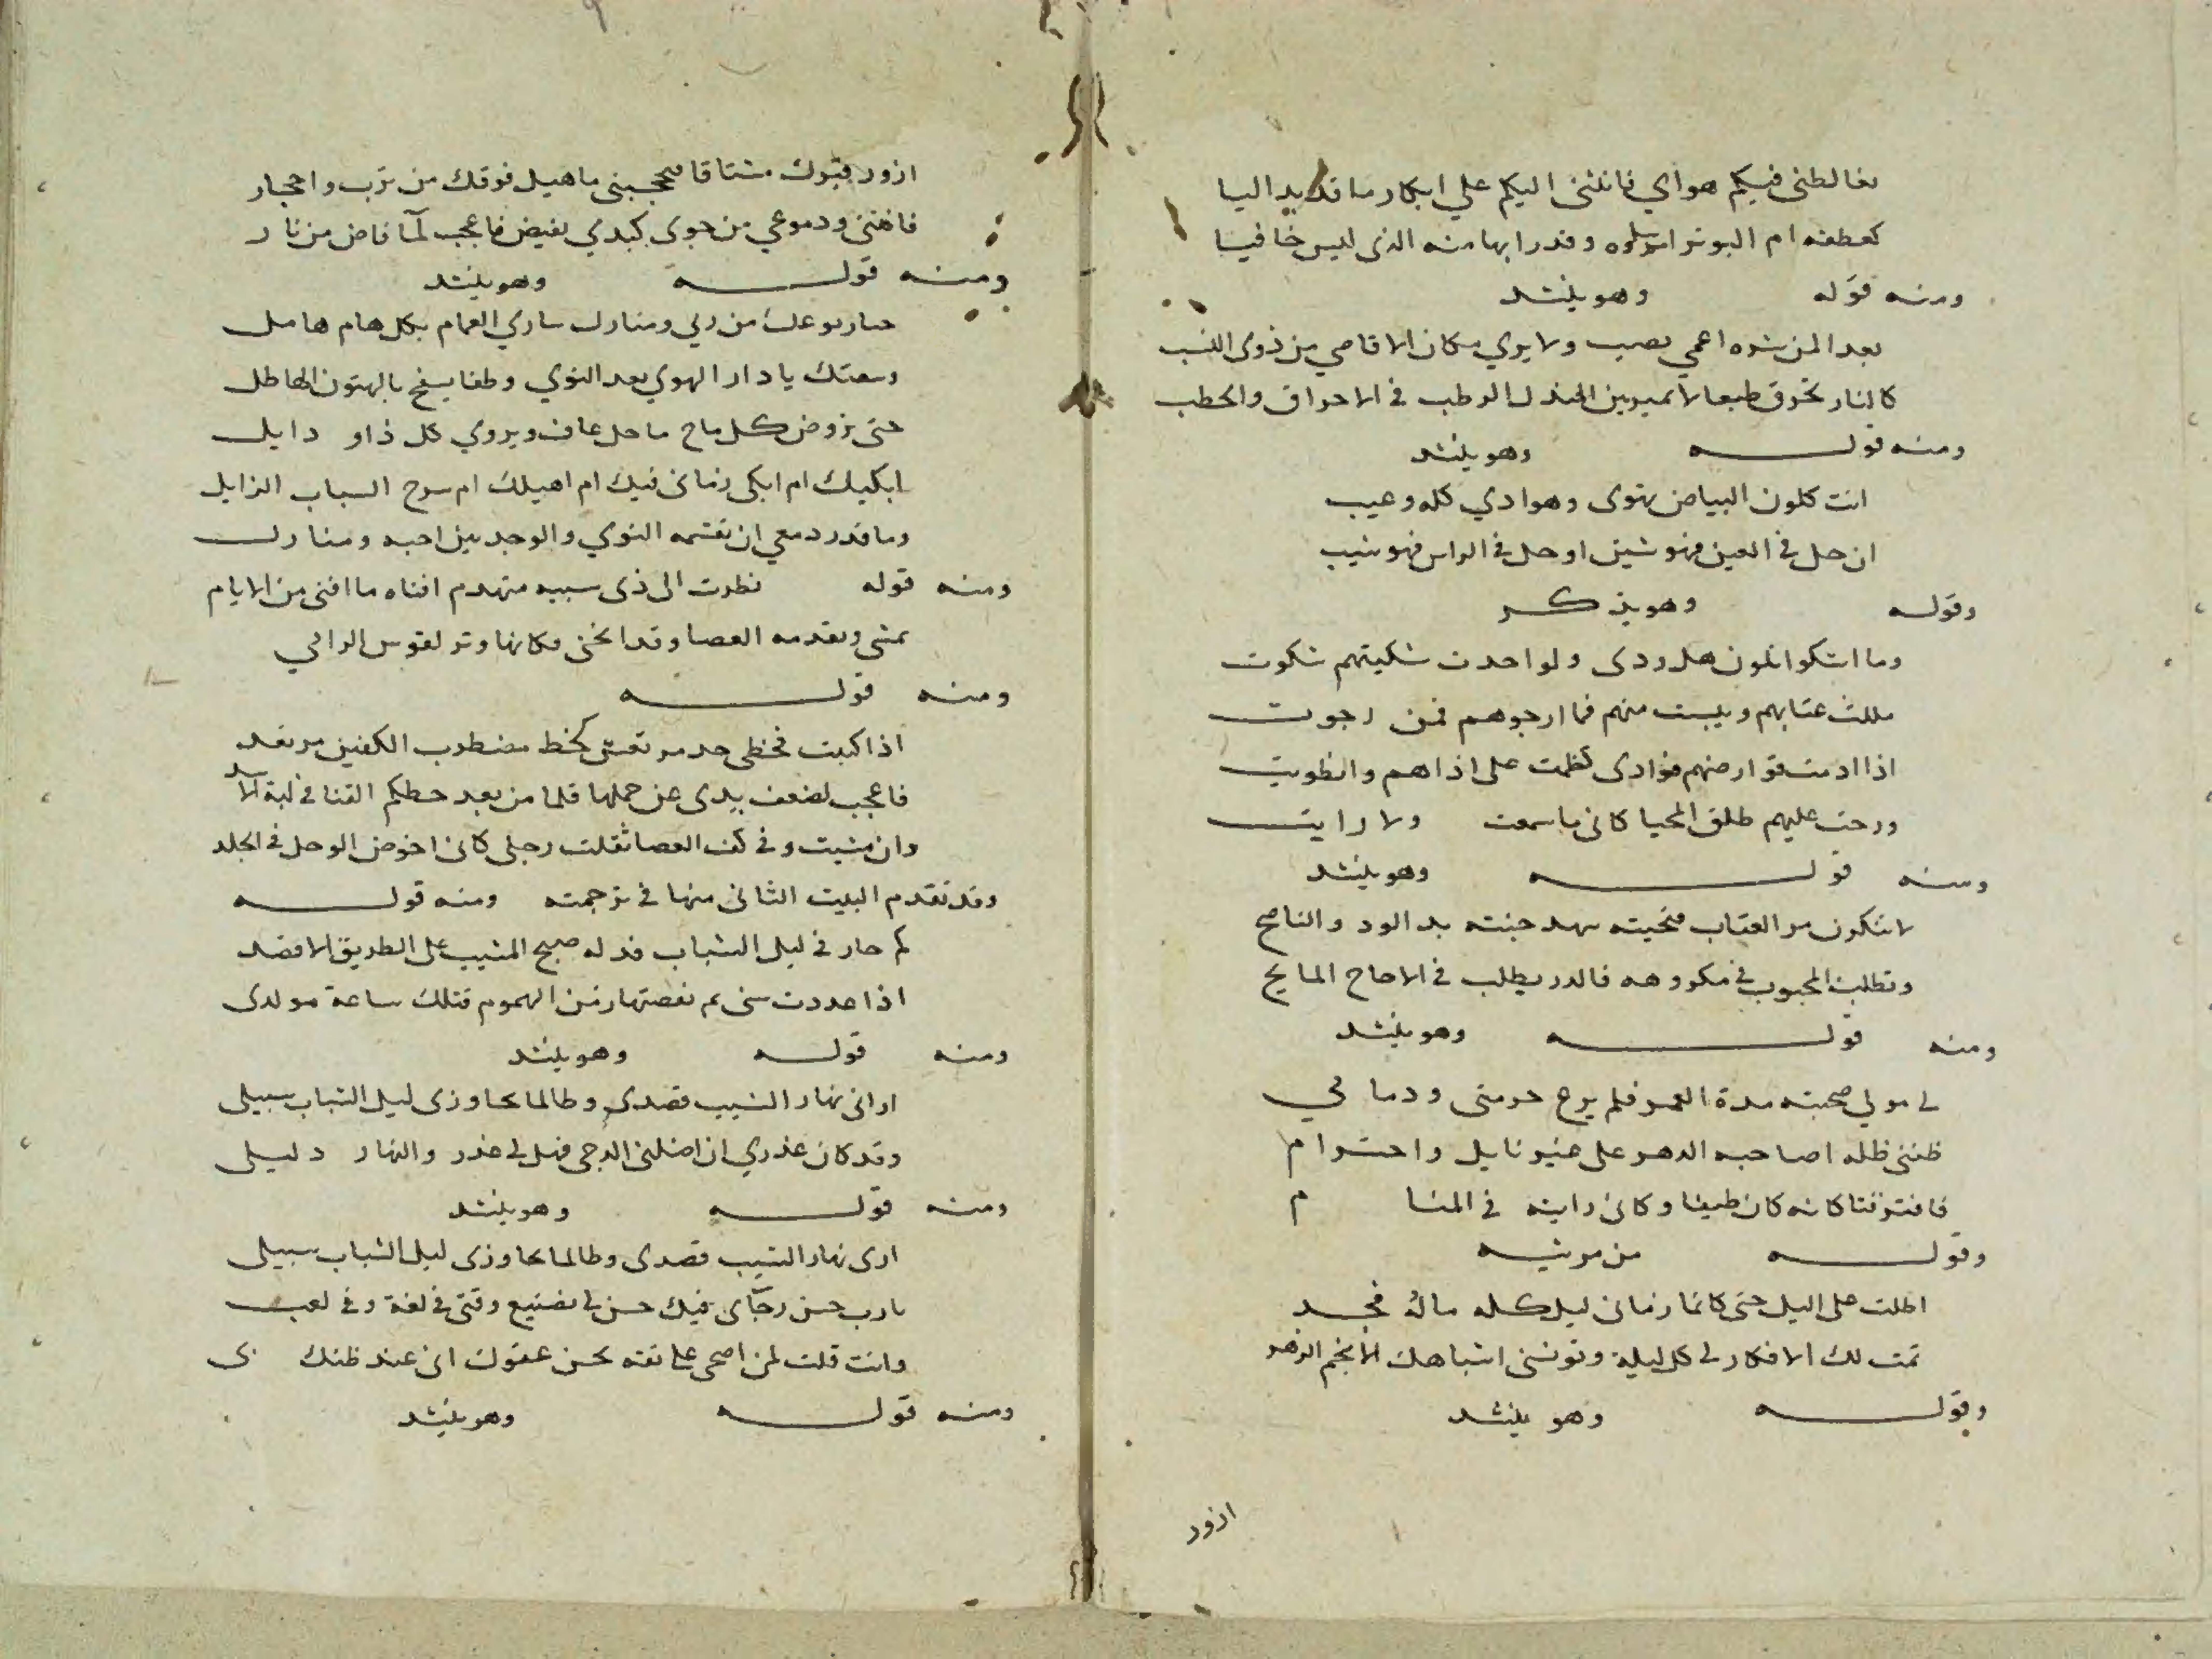 يغالطني فيكم هواي فانثني اليكم علي ابكار ما قد بدا ليا
كعطفه ام البو ترامه وقد رابها منه الذي ليس خافيا
ومنه قوله وهو ينشد
بعد المن شره اعمي يصيب ولا يري مكان الاقاصي من ذوي النسب
كالنار تحرق طبعا لا تميز بين المندل الرطب في الاحراق والحطب
ومنه قوله وهو ينشد
انت كلون البياض يهوى وهوادي كله وعيب
ان حل في العين فهو شين او حل في الراس فهو شيب
وقوله وهو يذكر
وما اشكوا تلون هل ودى ولو احدت شكيتهم شكوت
مللت عتابهم ويبست منهم فما ارجوهم فمن رجوت
اذا ادمت قوارصهم فؤادى كظمت على اذاهم وانطويت
ورحت عليهم طلق المحيا كانى ما سمعت ولا رايت
ومنه قوله وهو ينشد
لا تنكرن مر العتاب فتحيته سهد جنته يد الود والناصح
وتطلب المحبوب في مكروهه فالدر يطلب في الاجاج المايح
ومنه قوله وهو ينشد
لي مولي صحبته مدة العمر فلم يرع حرمتى وذمامي
ظننى ظله اصاحبه الدهر على غير نايل واحترام
فافترقنا كانه كان طيفا وكانى رايته في المنام
وقوله من مرثيه
اطلت على اليل حتى كانما زمانى ليل كله ماله فجر
تمت لك الافكار لي كل ليلة وتونسني اشباهك الانجم الزهر
وقوله وهو ينشد
ازور
ازور قبرك مشتاقا فيحجبنى ما هيل فوقك من ترب واحجار
فانثنى ودموعي من جوى كبدي تفيض فاعجب لما فاض من نار
ومنه قوله وهو ينشد
حيا ربوعك من ربي ومنازل ساري الغمام بكل هام هامل
وسقتك يا دار الهوي بعد النوي وطفا يسفح بالهتون الهاطل
حتى تروض كل ماح ماحل عاف ويروي كل ذاو ذابل
ابكيك ام ابكى زمانى فيك ام اهيلك ام سرح الشباب الزايل
وما قدر دمعي ان تقسمه النوي والوجد بين احبه ومنازل
ومنه قوله نظرت الى ذى سبيه متهدم افناه ما افنى من الايام
يمشى وتقدمه العصا وقد انحنى فكانها وتر لقوس الرامي
ومنه قوله
اذا كتبت فخطى جد مرتعش كخط مضطرب الكفين مرتعد
فاعجب لضعف يدى عن حملها قلما من بعد حطكم القنا في لبة الاسد
وان مشيت وفي كف العصا ثقلت رجلى كانى اخوض الوحل في الجلد
وقد تقدم البيت الثانى منها في ترجمته ومنه قوله
كم حار في ليل الشباب فدله صبح المشيب على الطريق الاقصد
اذا عددت سنى ثم نقصتها زمن الهموم فتلك ساعة مولدى
ومنه قوله وهو ينشد
ارانى نهار الشيب قصدى وطالما تجاوزى ليل الشباب سبيلى
وقد كان عذري ان اضلنى الدجى فهل لي عذر والنهار دليلى
ومنه قوله وهو ينشد
ارى نهار الشيب قصدى وطالما تجاوزى ليل الشباب سبيلى
يا رب حسن رجاى فيك حسن لي تضييع وقتى في لغة وفي لعب
وانت قلت لمن اضحى على ثقته بحسن عفوك انى عند ظنك بى
ومنه قوله وهو ينشد